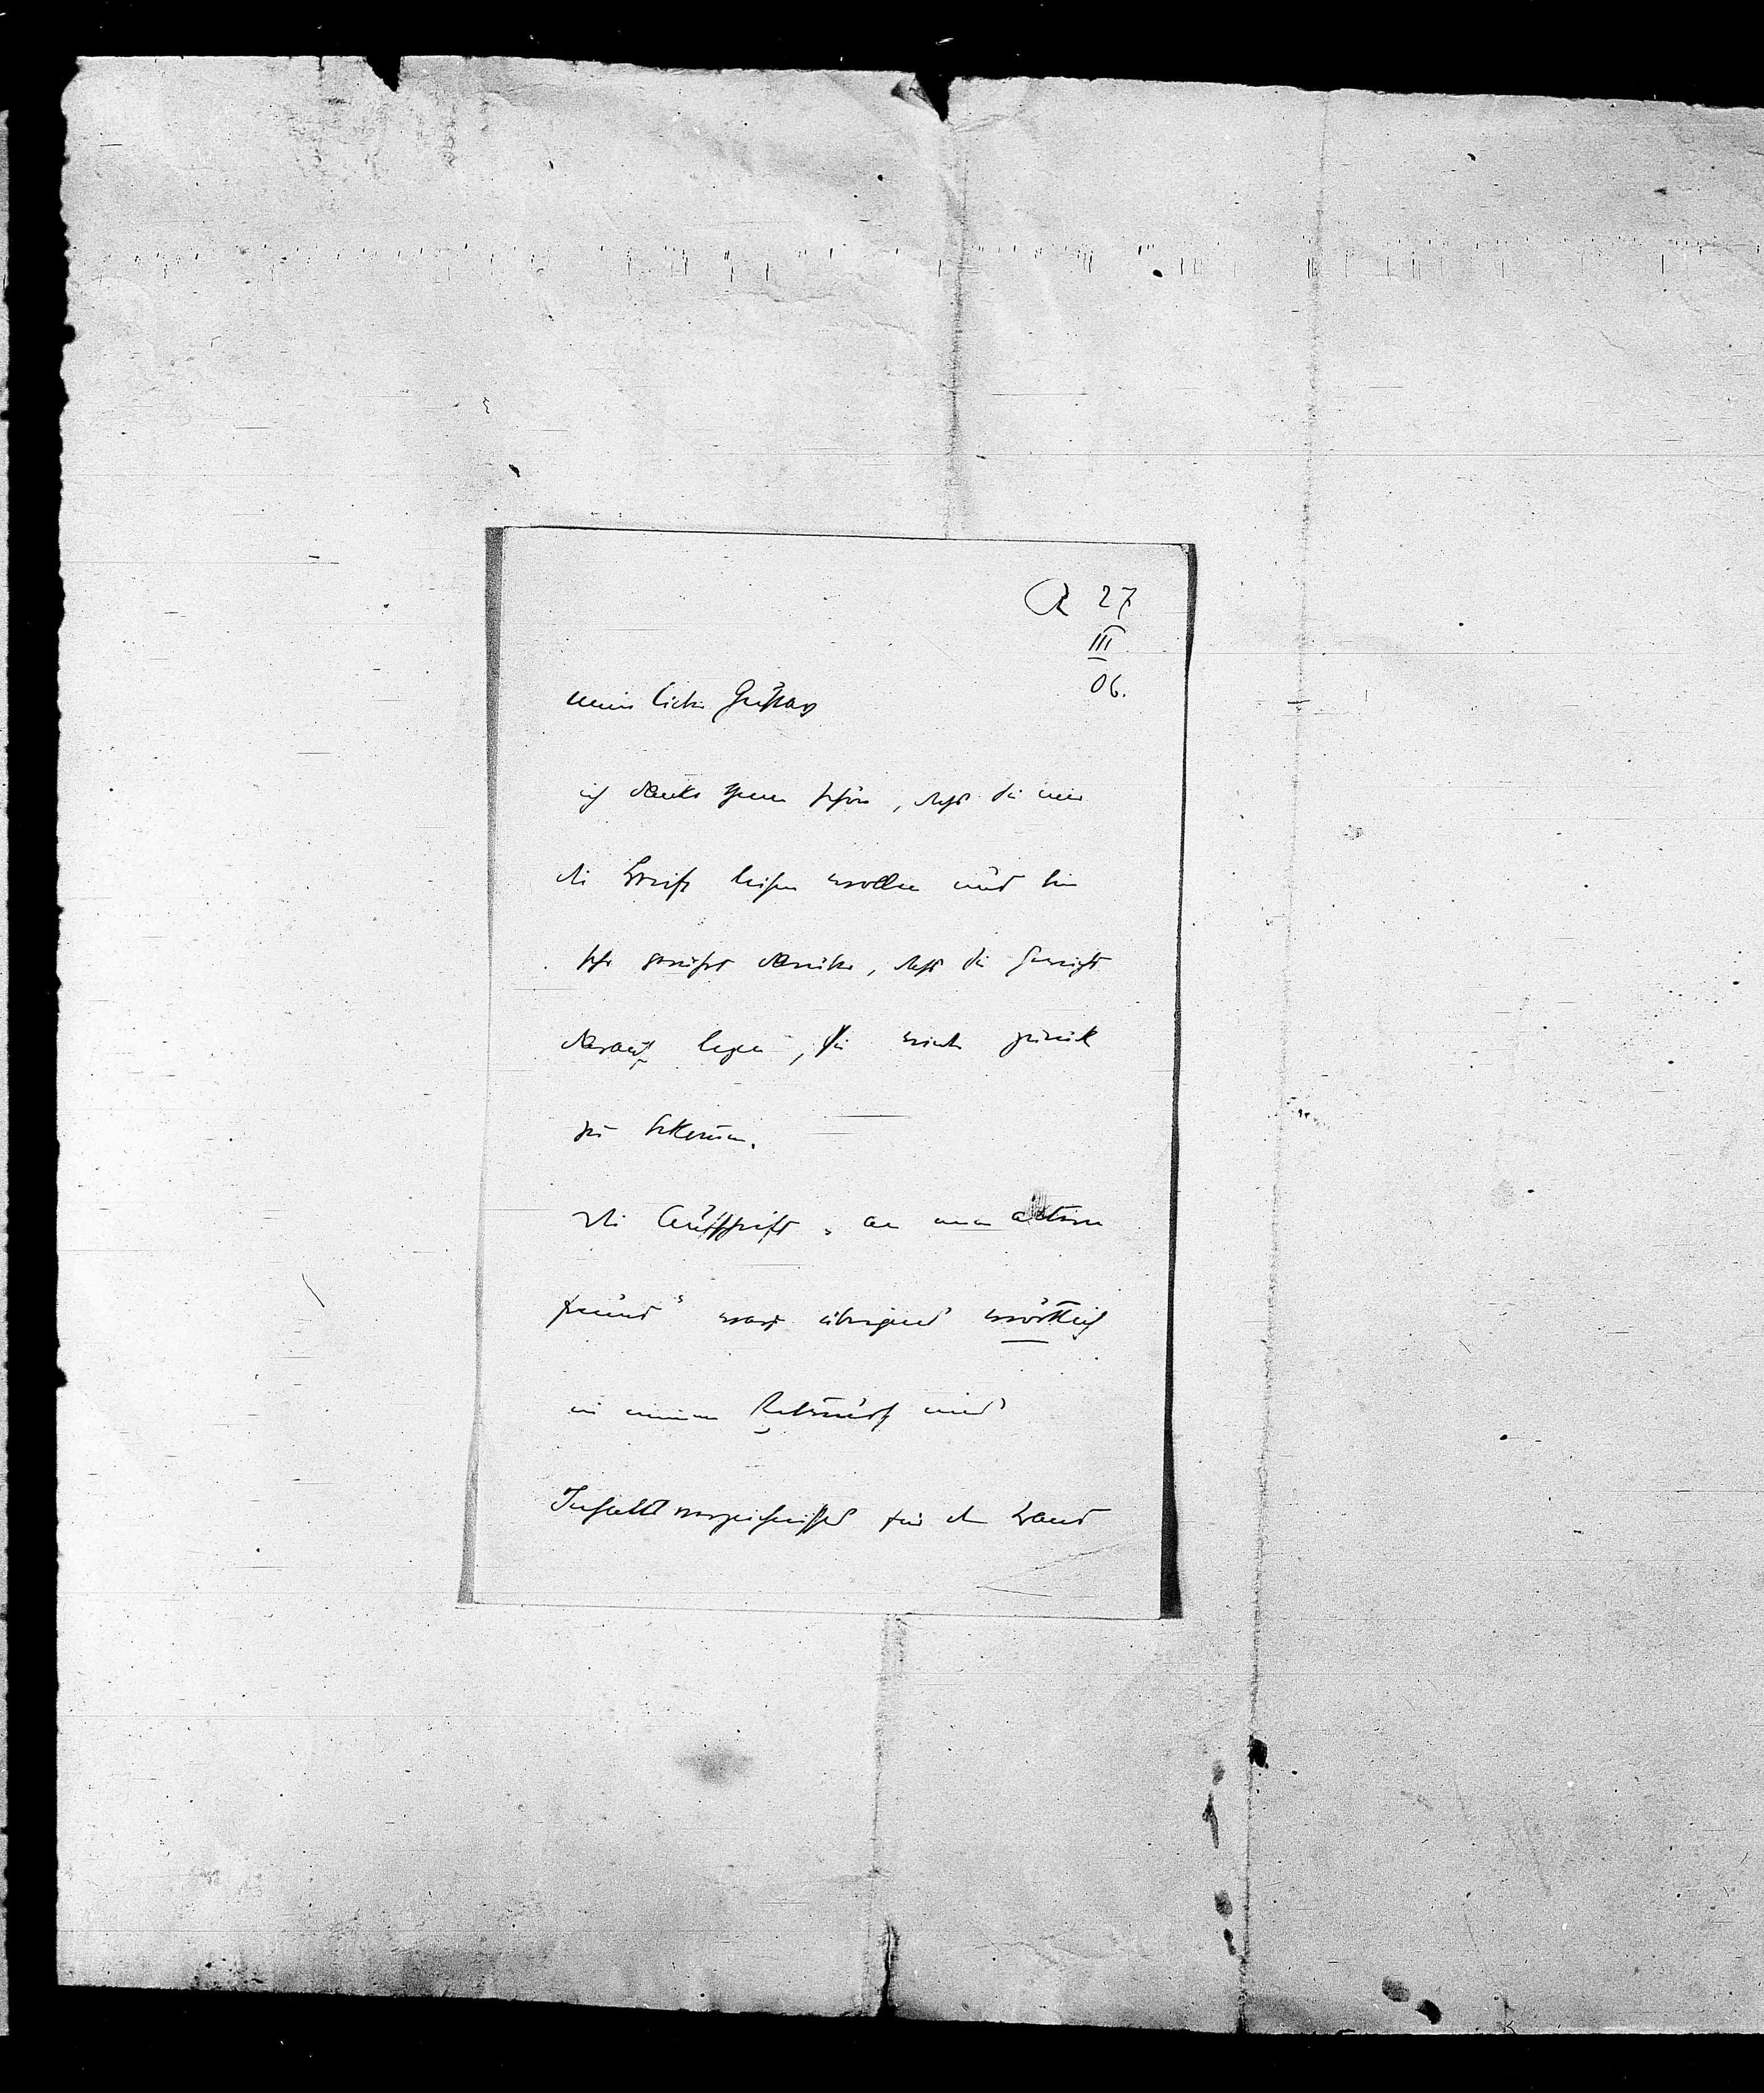 R 27
III
06.
mein lieber Gustav
ich danke Ihnen schön, daß Sie mir
die Briefe leihen wollen und bin
sehr gerührt darüber, daß Sie Gewicht
darauf legen, sie wieder zurück
zu bekommen.
Die Aufschrift „an einen aktiven
Freund“ war übrigens wörtlich
in meinem Entwurf und
Inhaltsverzeichnisse für den Band